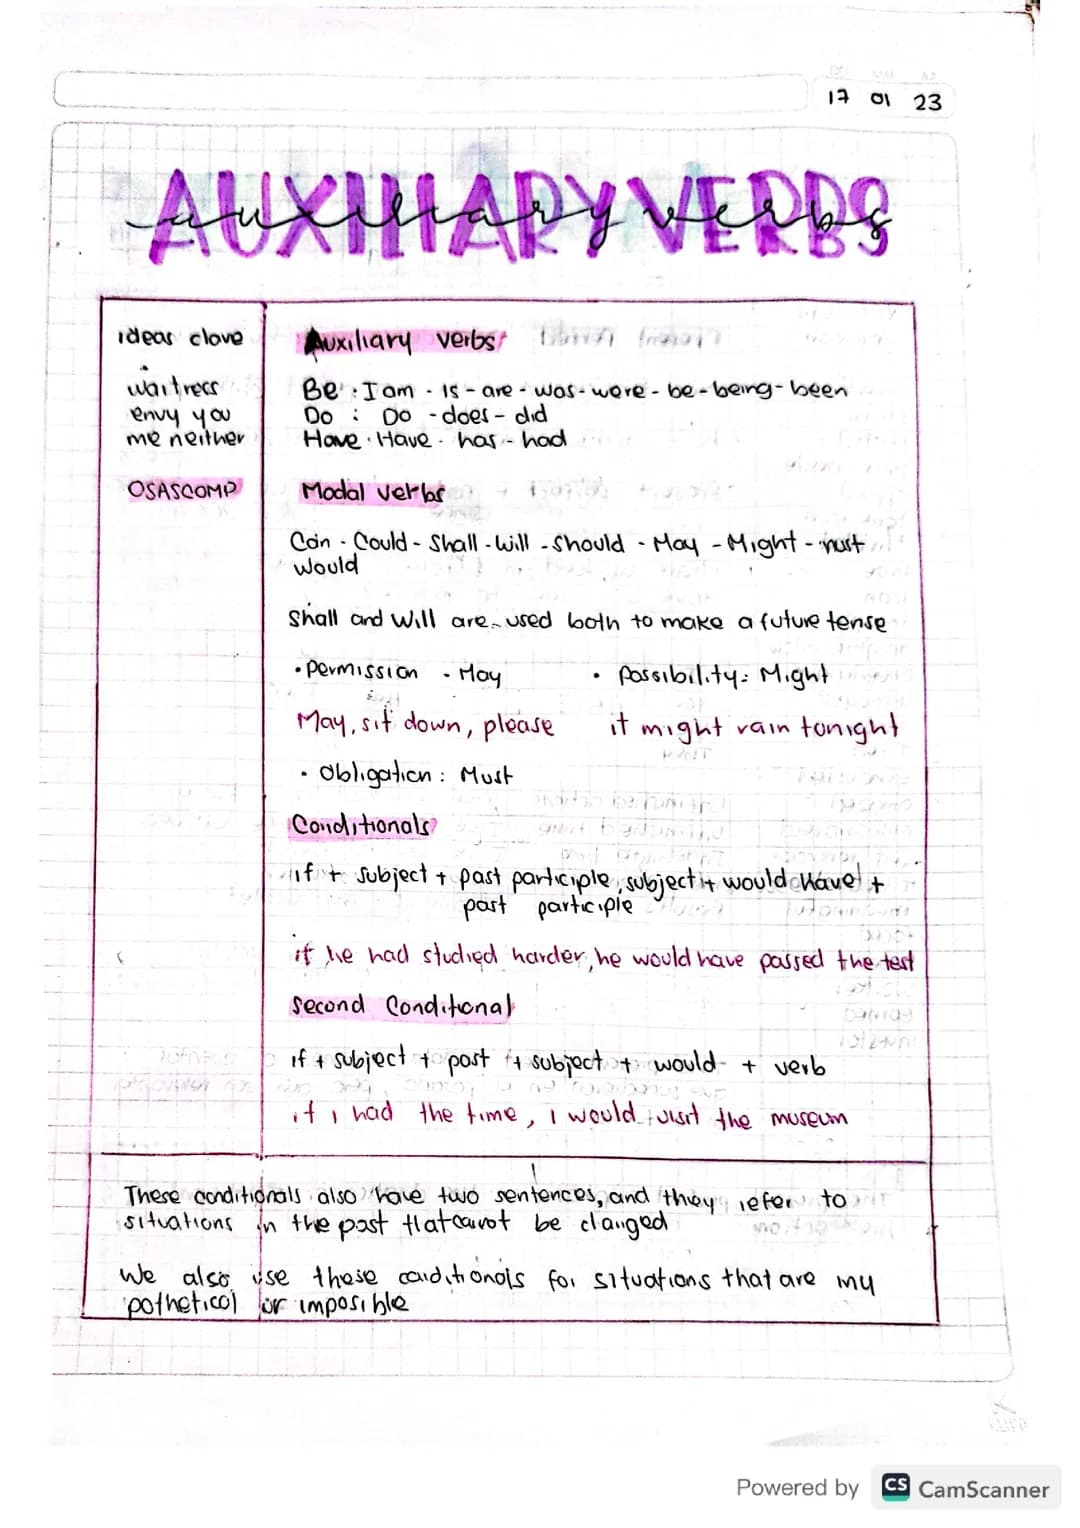 17 01 23
AUXILIARY VERBS
auxiliary verbs
ideas clave
Auxiliary verbs
waitress
Be : I am - is - are - was - were - be - being - been
envy you
Do : Do - does - did
me neither
Have : Have - has - had
OSASCOMP
Modal verbs
Can - Could - Shall - Will - Should - May - Might - must
would
Shall and Will are used both to make a future tense
• Permission - May
• Possibility: Might
May, sit down, please
it might rain tonight
• Obligation: Must
Conditionals
if + subject + past participle, subject + would have +
past participle
if he had studied harder, he would have passed the test
Second Conditional
if + subject + past + subject + would + verb
if i had the time, I would visit the museum
These conditionals also have two sentences, and they refer to
situations in the past that cannot be changed
We also use these conditionals for situations that are my
pothetical or imposible
Powered by CS CamScanner